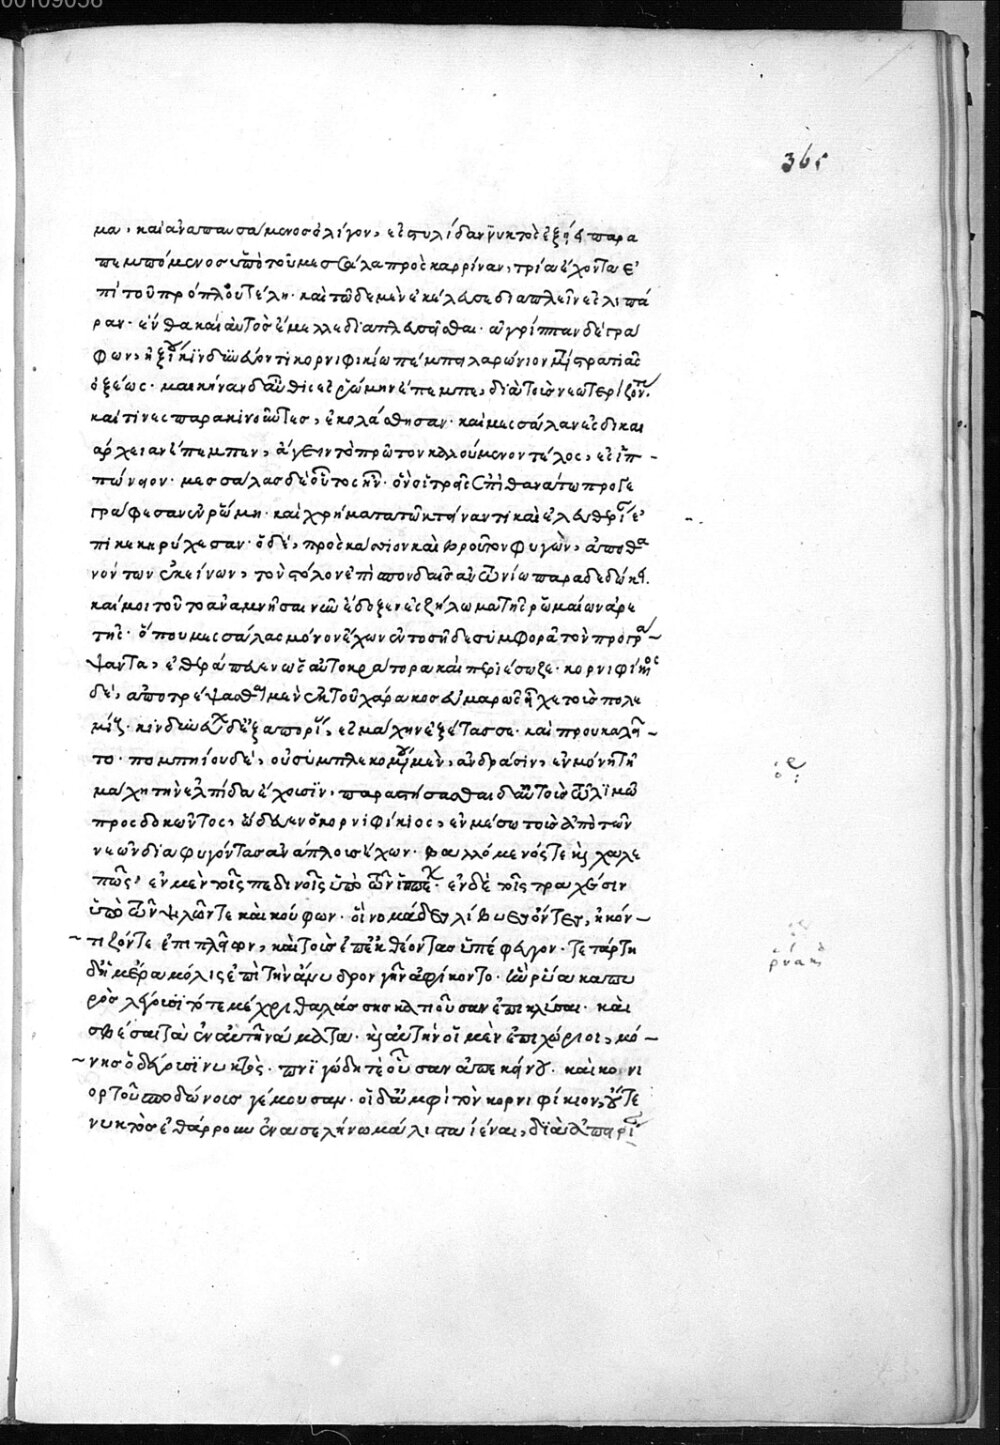 00109056
365
μα, καὶ ἀναπαυσάμενος ὀλίγον, ἐς στυλίδα νυκτὸς ἐξῄει παρα
πεμπόμενος ὑπὸ τοῦ μεσσάλα πρὸς καρρίναν, τρία ἔχοντα ἐ
πὶ τοῦ πρόπλου τέλη. καὶ τῶδε μὲν ἐκέλευσε διαπλεῖν ἐς λιπά
ραν. ἔνθα καὶ αὐτὸς ἔμελλε διαπλεύσεσθαι. ἀγρίππαν δὲ γρά
φων, ἠξίου κινδυνεύοντι κορνιφικίω πέμπειν λαρώνιον μετὰ στρατιᾶς
ὀξέως. μαικήναν δ' αὖθις ἐς ῥώμην ἔπεμπε, διὰ τοὺς νεωτερίζοντας.
καί τινες παρακινοῦντες, ἐκολάσθησαν. καὶ μεσσάλαν ἐς δικαι
άρχειαν ἔπεμπεν, ἄγειν τὸ πρῶτον καλούμενον τέλος, ἐς ἱπ-
πώνειον. μεσσάλας δὲ οὗτος ἦν. ὃν οἱ τρεῖς ἐπὶ θανάτω προγε
γράφεσαν ἐν ῥώμη. καὶ χρήματα τῶ κτείναντι καὶ ἐλευθερίαν ἐ
πικεκηρύχεσαν. ὁ δὲ, πρὸς κάσσιον καὶ βροῦτον φυγὼν, ἀποθα
νόντων ἐκείνων, τὸν στόλον ἐπὶ σπονδαῖς ἀντωνίω παραδεδώκει.
καί μοι τοῦτο ἀναμνῆσαι νῦν ἔδοξεν ἐς ζήλωμα τῆς ῥωμαίων ἀρε
τῆς. ὅπου μεσσάλας μόνον ἔχων ἐν τοσῆδε συμφορᾶ τὸν προγρά-
ψαντα, ἐθεράπευεν ὡς αὐτοκράτορα καὶ περιέσωζε. κορνιφίκιος
δὲ, ἀποτρέψασθαι μὲν ἐκ τοῦ χάρακος εὐμαρῶς εἶχε τοὺς πολε
μίους. κινδυνεύων δ' ἐξ ἀπορίας, ἐς μάχην ἐξέτασσε. καὶ προυκαλεῖ-
το. πομπηίου δὲ, οὐ συμπλεκομένου μὲν, ἀνδράσιν, ἐν μόνη τῆ
μάχη τὴν ἐλπίδα ἔχουσιν. παραστήσασθαι δ' αὐτοὺς τῶ λιμῶ
προσδοκῶντος, ὥδευεν ὁ κορνιφίκιος, ἐν μέσω τοὺς ἀπὸ τῶν
νεῶν διαφυγόντας ἀνόπλους ἔχων. βαλλόμενός τε καὶ χαλε
πῶς, ἐν μὲν τοῖς πεδινοῖς ὑπὸ τῶν ἱππέων. ἐν δὲ τοῖς τραχέσιν
ὑπὸ τῶν ψιλῶν τε καὶ κούφων. οἳ νομάδες λίβυες ὄντες, ἠκόν-
τιζόν τε ἐπὶ πλεῖστον, καὶ τοὺς ἐπεκθέοντας ὑπέφευγον. τετάρτη
δ' ἡμέρα μόλις ἐπὶ τὴν ἄνυδρον γῆν ἀφίκοντο. ἣν ῥύακα πυ
ρὸς λέγουσι ποτὲ μέχρι θαλάσσης κατιοῦσαν ἐπικλύσαι. καὶ
σβέσαι τὰ ἐν αὐτῆ νάματα. καὶ αὐτὴν οἱ μὲν ἐπιχώριοι, μό-
νης ὁδεύουσι νυκτὸς. πνιγώδη τε οὖσαν ἀπ' ἐκείνου. καὶ κονι
ορτοῦ σποδώδους γέμουσαν. οἱ δ' ἀμφὶ τὸν κορνιφίκιον, οὔτε
νυκτὸς ἐθάρρουν ἐν ἀσελήνω μάλιστα ἰέναι, δι' ἀπειρίαν
ῥύακ